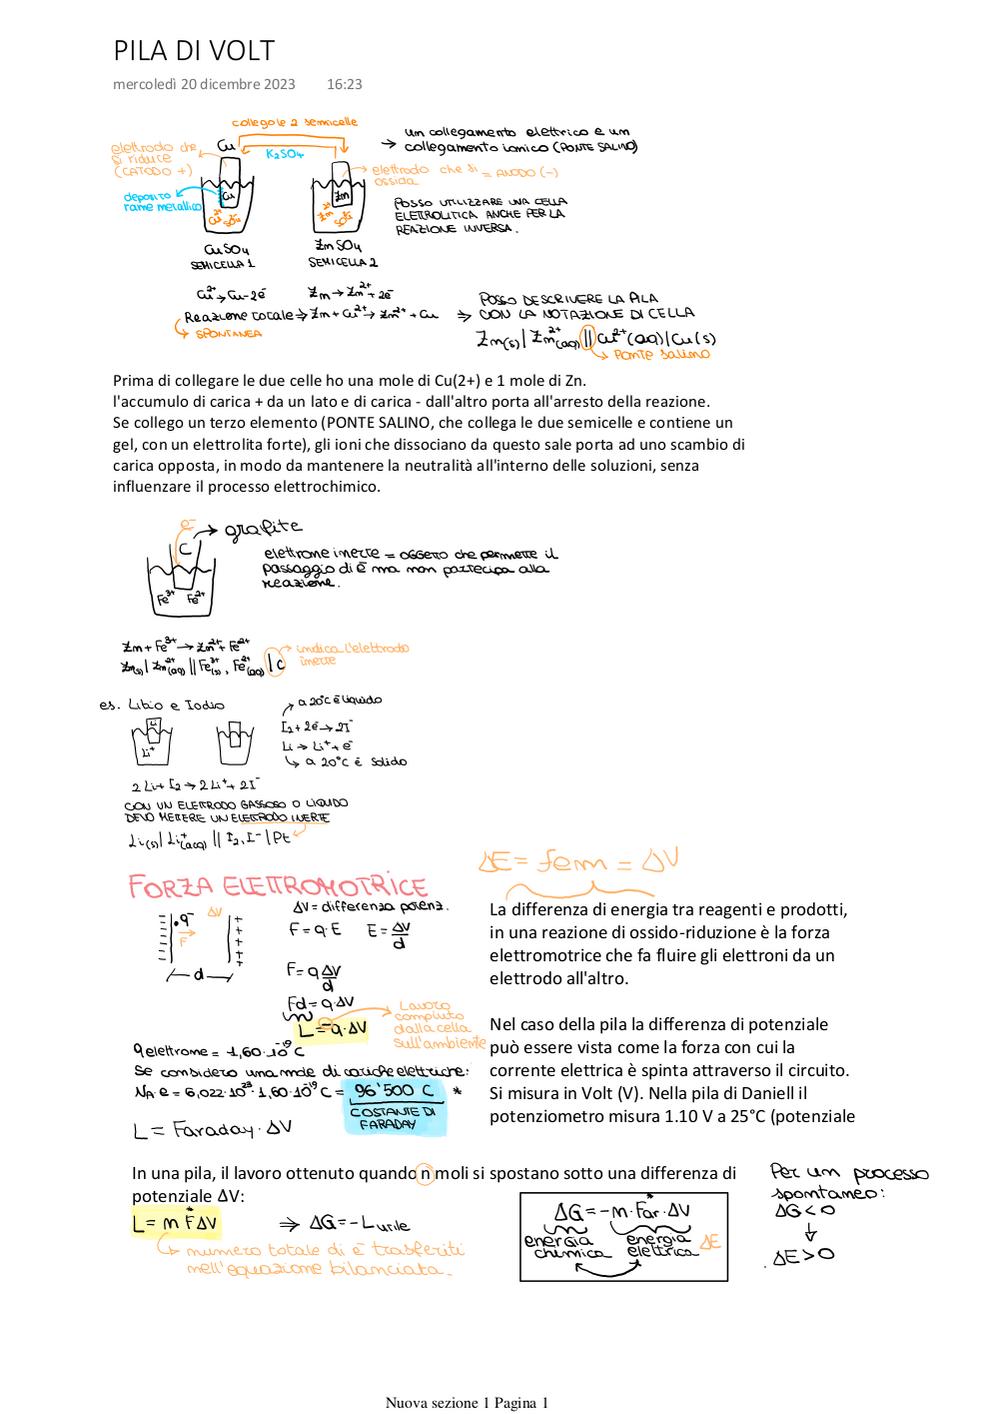 PILA DI VOLT
mercoledì 20 dicembre 2023 16:23
collego le 2 semicelle
Cu
K₂SO₄
elettrodo che
si riduce
(CATODO +)
deposito
rame metallico
Cu
Cu²⁺ SO₄²⁻
Zn
Zn²⁺ SO₄²⁻
elettrodo che si = ANODO (-)
ossida
→ un collegamento elettrico e un
collegamento ionico (PONTE SALINO)
POSSO UTILIZZARE UNA CELLA
ELETTROLITICA ANCHE PER LA
REAZIONE INVERSA.
CuSO₄
SEMICELLA 1
ZnSO₄
SEMICELLA 2
Cu²⁺→Cu-2e⁻ Zn→Zn²⁺+2e⁻
Reazione totale→Zn+Cu²⁺→Zn²⁺+Cu
↳ SPONTANEA
⇒ POSSO DESCRIVERE LA PILA
CON LA NOTAZIONE DI CELLA
Zn(s)|Zn²⁺(aq)||Cu²⁺(aq)|Cu(s)
↳ Ponte salino
Prima di collegare le due celle ho una mole di Cu(2+) e 1 mole di Zn.
l'accumulo di carica + da un lato e di carica - dall'altro porta all'arresto della reazione.
Se collego un terzo elemento (PONTE SALINO, che collega le due semicelle e contiene un
gel, con un elettrolita forte), gli ioni che dissociano da questo sale porta ad uno scambio di
carica opposta, in modo da mantenere la neutralità all'interno delle soluzioni, senza
influenzare il processo elettrochimico.
e⁻ → grafite
C
Fe³⁺ Fe²⁺
elettrone inerte = oggetto che permette il
passaggio di e⁻ ma non partecipa alla
reazione.
Zn+Fe³⁺→Zn²⁺+Fe²⁺
Zn(s)|Zn²⁺(aq)||Fe³⁺(s), Fe²⁺(aq)|C
→ indica l'elettrodo
inerte
es. Litio e Iodio
Li
Li⁺
→ a 20°C è liquido
I₂+2e⁻→2I⁻
Li→Li⁺+e⁻
↳ a 20°C è solido
2Li+I₂→2Li⁺+2I⁻
CON UN ELETTRODO GASSOSO O LIQUIDO
DEVO METTERE UN ELETTRODO INERTE
Li(s)|Li⁺(aq)||I₂,I⁻|Pt
FORZA ELETTROMOTRICE
ΔE = fem = ΔV
q⁻ ΔV
F
d
ΔV=differenza potenz.
F=q·E E=ΔV/d
F=q ΔV/d
Fd=q·ΔV
L=-q·ΔV
Lavoro
compiuto
dalla cella
sull'ambiente
La differenza di energia tra reagenti e prodotti,
in una reazione di ossido-riduzione è la forza
elettromotrice che fa fluire gli elettroni da un
elettrodo all'altro.
Nel caso della pila la differenza di potenziale
può essere vista come la forza con cui la
corrente elettrica è spinta attraverso il circuito.
Si misura in Volt (V). Nella pila di Daniell il
potenziometro misura 1.10 V a 25°C (potenziale
q elettrone = -1,60·10⁻¹⁹ C
Se considero una mole di cariche elettriche:
Nₐ·e = 6,022·10²³·1,60·10⁻¹⁹ C = 96'500 C *
COSTANTE DI
FARADAY
L = Faraday·ΔV
In una pila, il lavoro ottenuto quando n moli si spostano sotto una differenza di
potenziale ΔV:
L=n F* ΔV ⇒ ΔG=-L utile
↳ numero totale di e⁻ trasferiti
nell'equazione bilanciata.
ΔG=-n·Far*·ΔV
energia
chimica
energia
elettrica
ΔE
Per un processo
spontaneo:
ΔG<0
↓
ΔE>0
Nuova sezione 1 Pagina 1